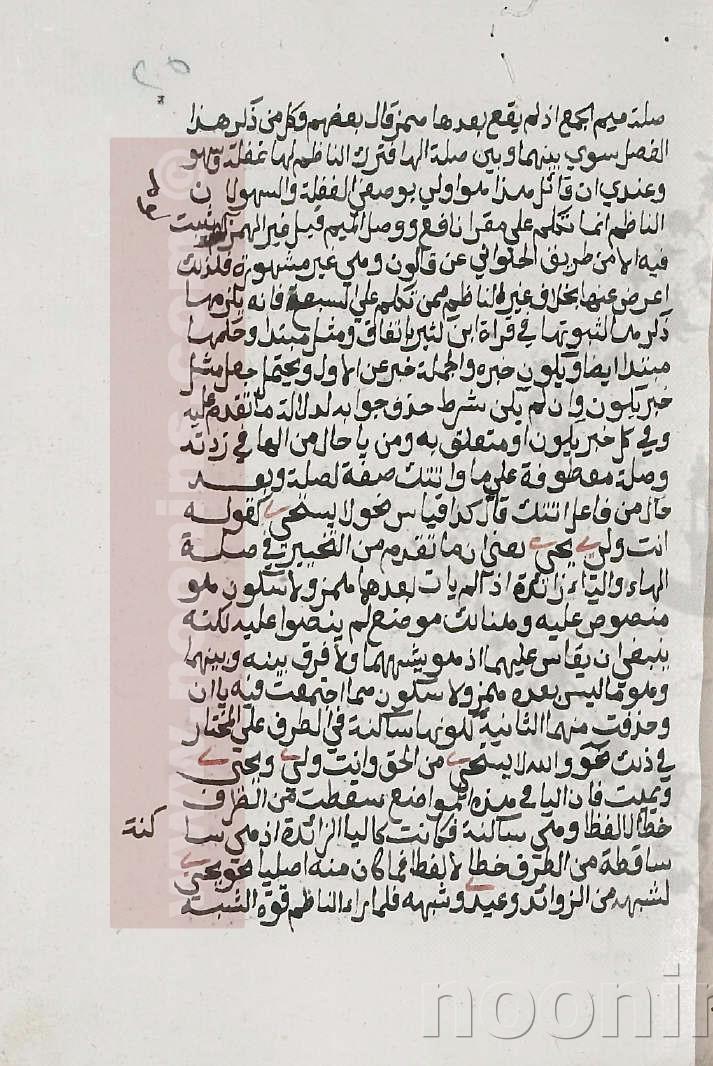 صلة ميم الجمع اذ لم يقع بعدها همز قال بعضهم وكل من ذكر هذا
الفصل سوي بينهما وبين صلة الها فترك الناظم لها غفلة وسهو
وعندي ان قائل هذا هو اولي بوصفي الغفلة والسهو لان
الناظم انما تكلم علي مقرا نافع ووصل الميم قبل غير الهمز لم يثبت
فيه الا من طريق الحلواني عن قالون وهي غير مشهورة فلذلك
اعرض عنها بخلاف غيره الناظم ممن تكلم علي السبعة فانه يلزمها
ذكرها لثبوتها في قراة ابن كثير باتفاق ومثل مبتدا وحكمها
مبتدا ايضا ويكون خبره والجملة خبر عن الاول ويحتمل جعل مثل
خبر يكون وان لم يكن شرط حذف جوابه لدلالة ما تقدم عليه
وفي كل خبر يكون او متعلق به ومن يا حال من الها في زدته
وصلة معطوفة علي ما واتتك صفة لصلة وبعد
حال من فاعل اتتك قال كذا قياس نحو لا يستحي كقوله
انت ولي يحي يعني ان ما تقدم من التخيير في صلة
الهاء والياء زائدة اذ الم يات بعدها همز ولا سكون هو
منصوص عليه وهنالك موضع لم ينصوا عليه لكنه
ينبغي ان يقاس عليهما اذ هو يشبههما ولا فرق بينه وبينهما
وهو ما ليس بعده همز ولا سكون مما اجتمعت فيه ياان
وحذفت منهما الثانية لكونها ساكنة في الطرف علي المختار
في ذلك نحو والله لا يستحي من الحق وانت ولي ويحي
ويميت فان اليا في هذه المواضع سقطت من الطرف
خطا لا لفظا وهي ساكنة فكانت كاليا الزائدة اذ هي سا كنة
ساقطة من الطرف خطا لا لفظا فما كان منه اصليا نحو يحي
لشبهه من الزوائد وعيد وشبهه فلما راء الناظم قوة الشبه
www.noonin
noonin